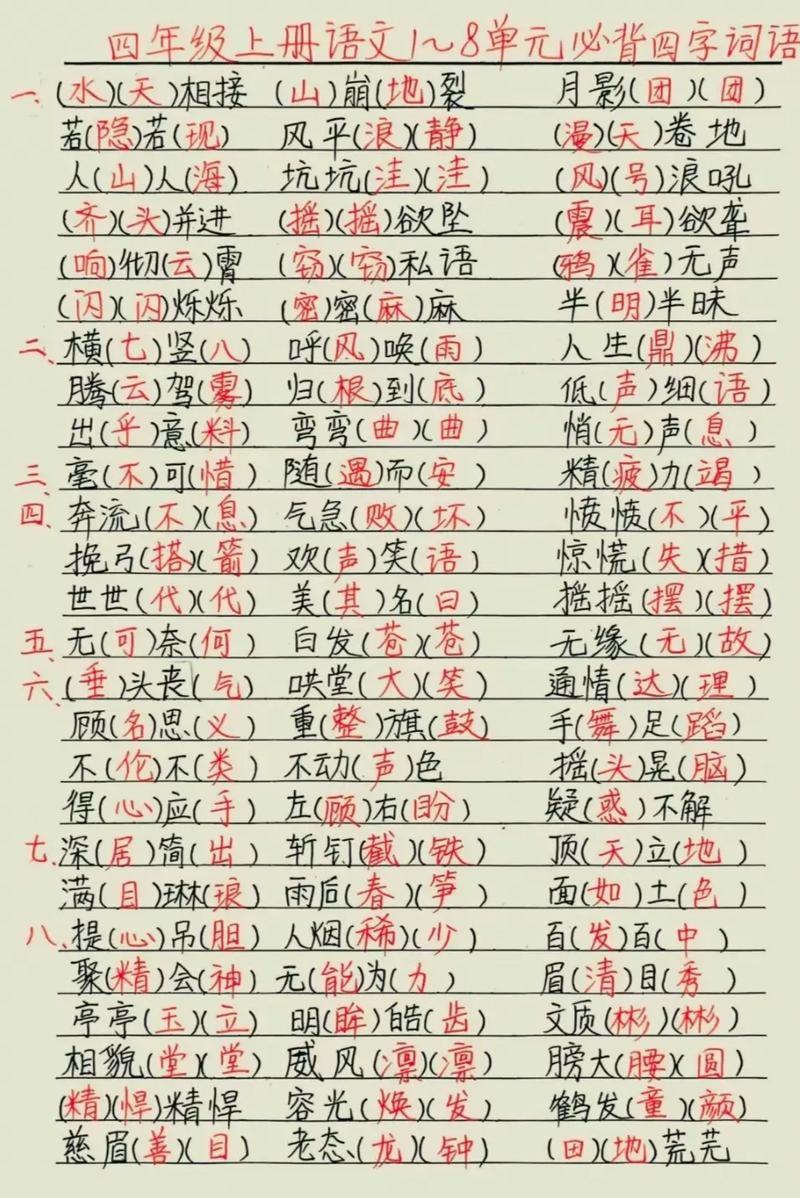 四年级上册语文1~8单元必背四字词语
一、(水)(天)相接 (山)崩(地)裂 月影(团)(团)
若(隐)若(现) 风平(浪)(静) (漫)(天)卷地
人(山)人(海) 坑坑(洼)(洼) (风)(号)浪吼
(齐)(头)并进 (摇)(摇)欲坠 (震)(耳)欲聋
(响)彻(云)霄 (窃)(窃)私语 (鸦)(雀)无声
(闪)(闪)烁烁 (密)密(麻)麻 半(明)半昧
二、横(七)竖(八) 呼(风)唤(雨) 人生(鼎)(沸)
腾(云)驾(雾) 归(根)到(底) 低(声)细(语)
出(乎)意(料) 弯弯(曲)(曲) 悄(无)声(息)
三、毫(不)可(惜) 随(遇)而(安) 精(疲)力(竭)
四、奔流(不)(息) 气急(败)(坏) 愤愤(不)(平)
挽弓(搭)(箭) 欢(声)笑(语) 惊慌(失)(措)
世世(代)(代) 美(其)名(曰) 摇摇(摆)(摆)
五、无(可)奈(何) 白发(苍)(苍) 无缘(无)(故)
六、(垂)头丧(气) 哄堂(大)(笑) 通情(达)(理)
顾(名)思(义) 重(整)旗(鼓) 手(舞)足(蹈)
不(伦)不(类) 不动(声)色 摇(头)晃(脑)
得(心)应(手) 左(顾)右(盼) 疑(惑)不解
七、深(居)简(出) 斩钉(截)(铁) 顶(天)立(地)
满(目)琳(琅) 雨后(春)(笋) 面(如)土(色)
八、提(心)吊(胆) 人烟(稀)(少) 百(发)百(中)
聚(精)会(神) 无(能)为(力) 眉(清)目(秀)
亭亭(玉)(立) 明(眸)皓(齿) 文质(彬)(彬)
相貌(堂)(堂) 威风(凛)(凛) 膀大(腰)(圆)
(精)(悍)精悍 容光(焕)(发) 鹤发(童)(颜)
慈眉(善)(目) 老态(龙)(钟) (田)(地)荒芜